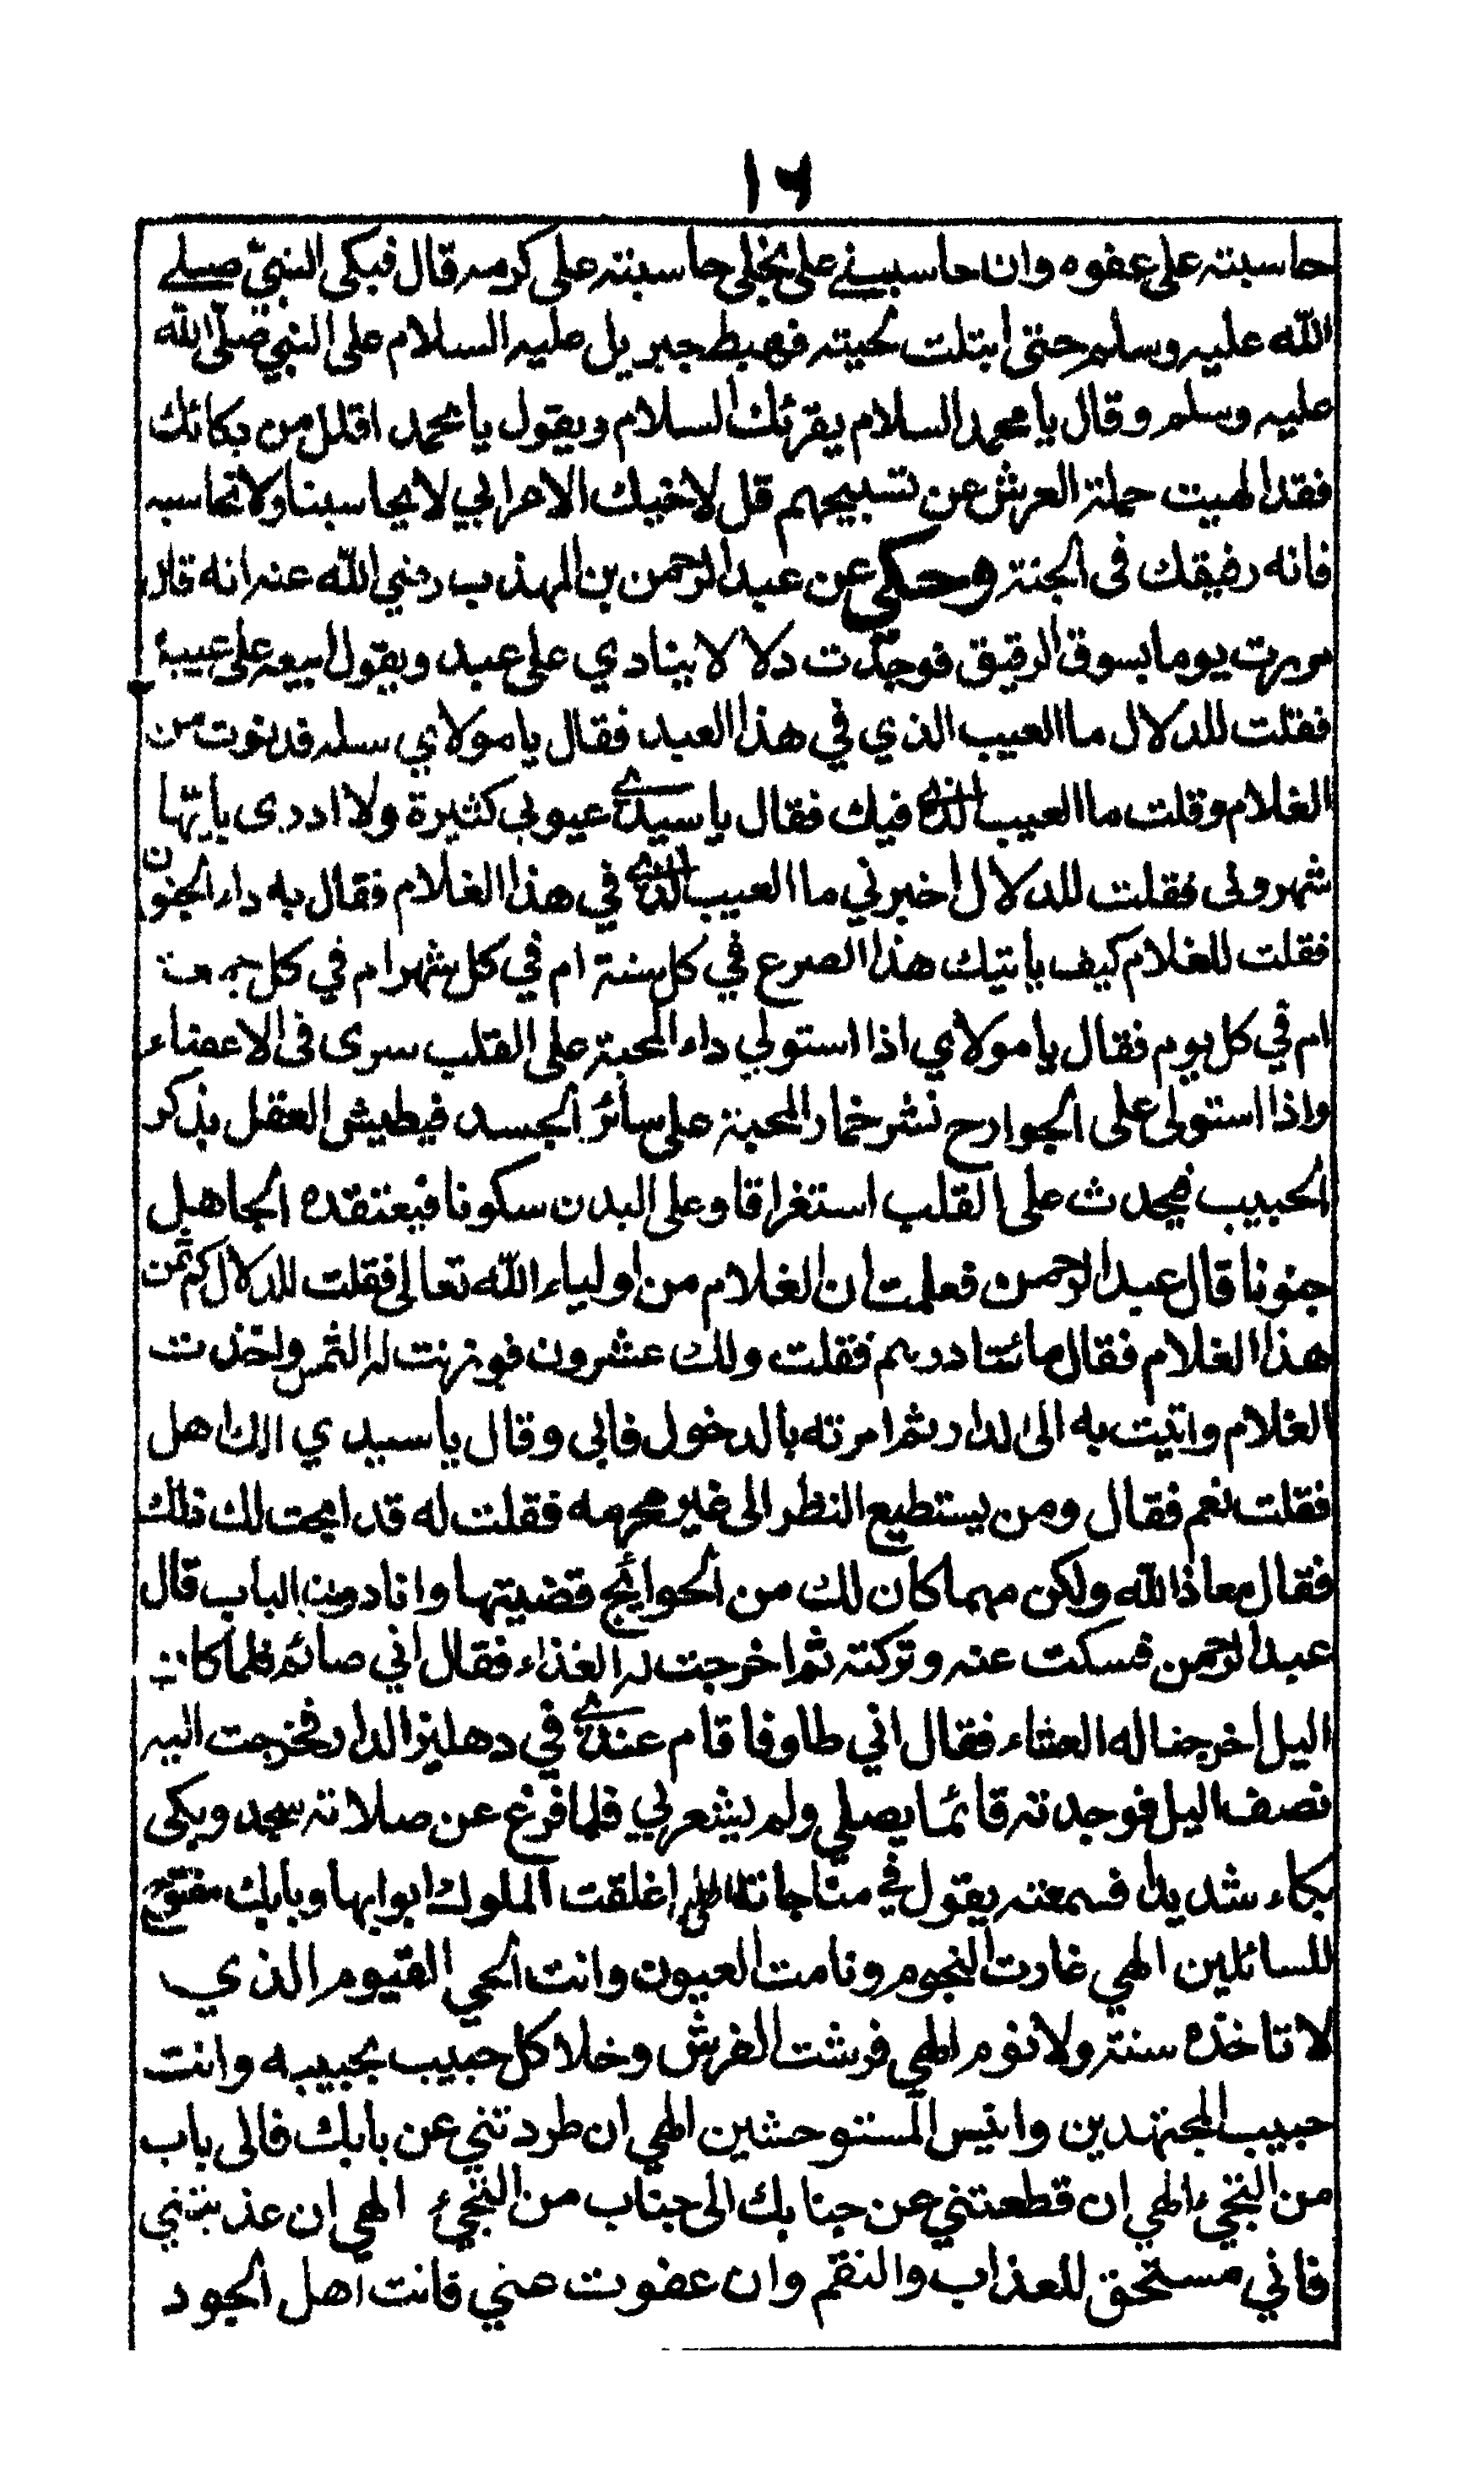 ١٦
حاسبته على عفوه وان حاسبني على بخلى حاسبته على كرمه قال فبكى النبيّ صلى
الله عليه وسلم حتى ابتلت لحيته فهبط جبريل عليه السلام على النبي صلّى الله
عليه وسلم وقال يا محمد السلام يقرئك السلام ويقول يا محمد اقلل من بكائك
فقد الهيت حملة العرش عن تسبيحهم قل لاخيك الاعرابي لا يحاسبنا ولا نحاسبه
فانه رفيقك فى الجنة وحكى عن عبد الرحمن بن المهذب رضي الله عنه انه قال
مررت يوما بسوق الرقيق فوجدت دلالا ينادي على عبد ويقول ابيعه على عيبه
فقلت للدلال ما العيب الذي في هذا العبد فقال يا مولاي سله فدنوت من
الغلام وقلت ما العيب الذي فيك فقال يا سيدي عيوبي كثيرة ولا ادرى بايّها
شهرونى فقلت للدلال اخبرني ما العيب الذي في هذا الغلام فقال به داء الجنون
فقلت للغلام كيف ياتيك هذا الصرع في كل سنة ام في كل شهر ام في كل جمعة
ام في كل يوم فقال يا مولاي اذا استولي داء المحبة على القلب سرى فى الاعضاء
واذا استولى على الجوارح نشر خمار المحبة على سائر الجسد فيطيش العقل بذكر
الحبيب فيحدث على القلب استغراقا وعلى البدن سكونا فيعتقده الجاهل
جنونا قال عبد الرحمن فعلمت ان الغلام من اولياء الله تعالى فقلت للدلال كم ثمن
هذا الغلام فقال مائتا درهم فقلت ولك عشرون فوزنت له الثمن واخذت
الغلام واتيت به الى الدار ثم امرته بالدخول فابى وقال يا سيدي الك اهل
فقلت نعم فقال ومن يستطيع النظر الى غير محرمه فقلت له قد ابحت لك ذلك
فقال معاذ الله ولكن مهما كان لك من الحوائج قضيتها وانا دون الباب قال
عبد الرحمن فسكت عنه وتركته ثم اخرجت له الغذاء فقال اني صائم فلما كان
اليل اخرجنا له العشاء فقال اني طاو فاقام عندي في دهليز الدار فخرجت اليه
نصف اليل فوجدته قائما يصلي ولم يشعر بي فلما فرغ عن صلاته سجد وبكى
بكاء شديدا فسمعته يقول في مناجاته الهي اغلقت الملوك ابوابها وبابك مفتوح
للسائلين الهي غارت النجوم ونامت العيون وانت الحي القيوم الذي
لا تاخذه سنة ولا نوم الهي فرشت الفرش وخلا كل حبيب بحبيبه وانت
حبيب المجتهدين وانيس المستوحشين الهي ان طردتني عن بابك فالى باب
من التجئ الهي ان قطعتني عن جنابك الى جناب من التجئ الهي ان عذبتني
فاني مستحق للعذاب والنقم وان عفوت عني فانت اهل الجود